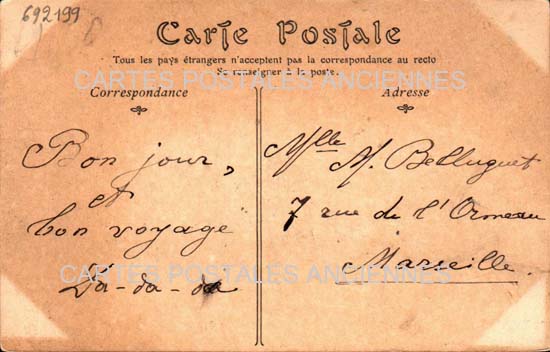 692199
Carte Postale
Tous les pays étrangers n'acceptent pas la correspondance au recto
Se renseigner à la poste.
CARTES POSTALES ANCIENNES
Correspondance
Adresse
Bon jour,
et
bon voyage
Da-da-da
Mlle M. Belluguet
7 rue de l'Ormeau
Marseille.
CARTES POSTALES ANCIENNES